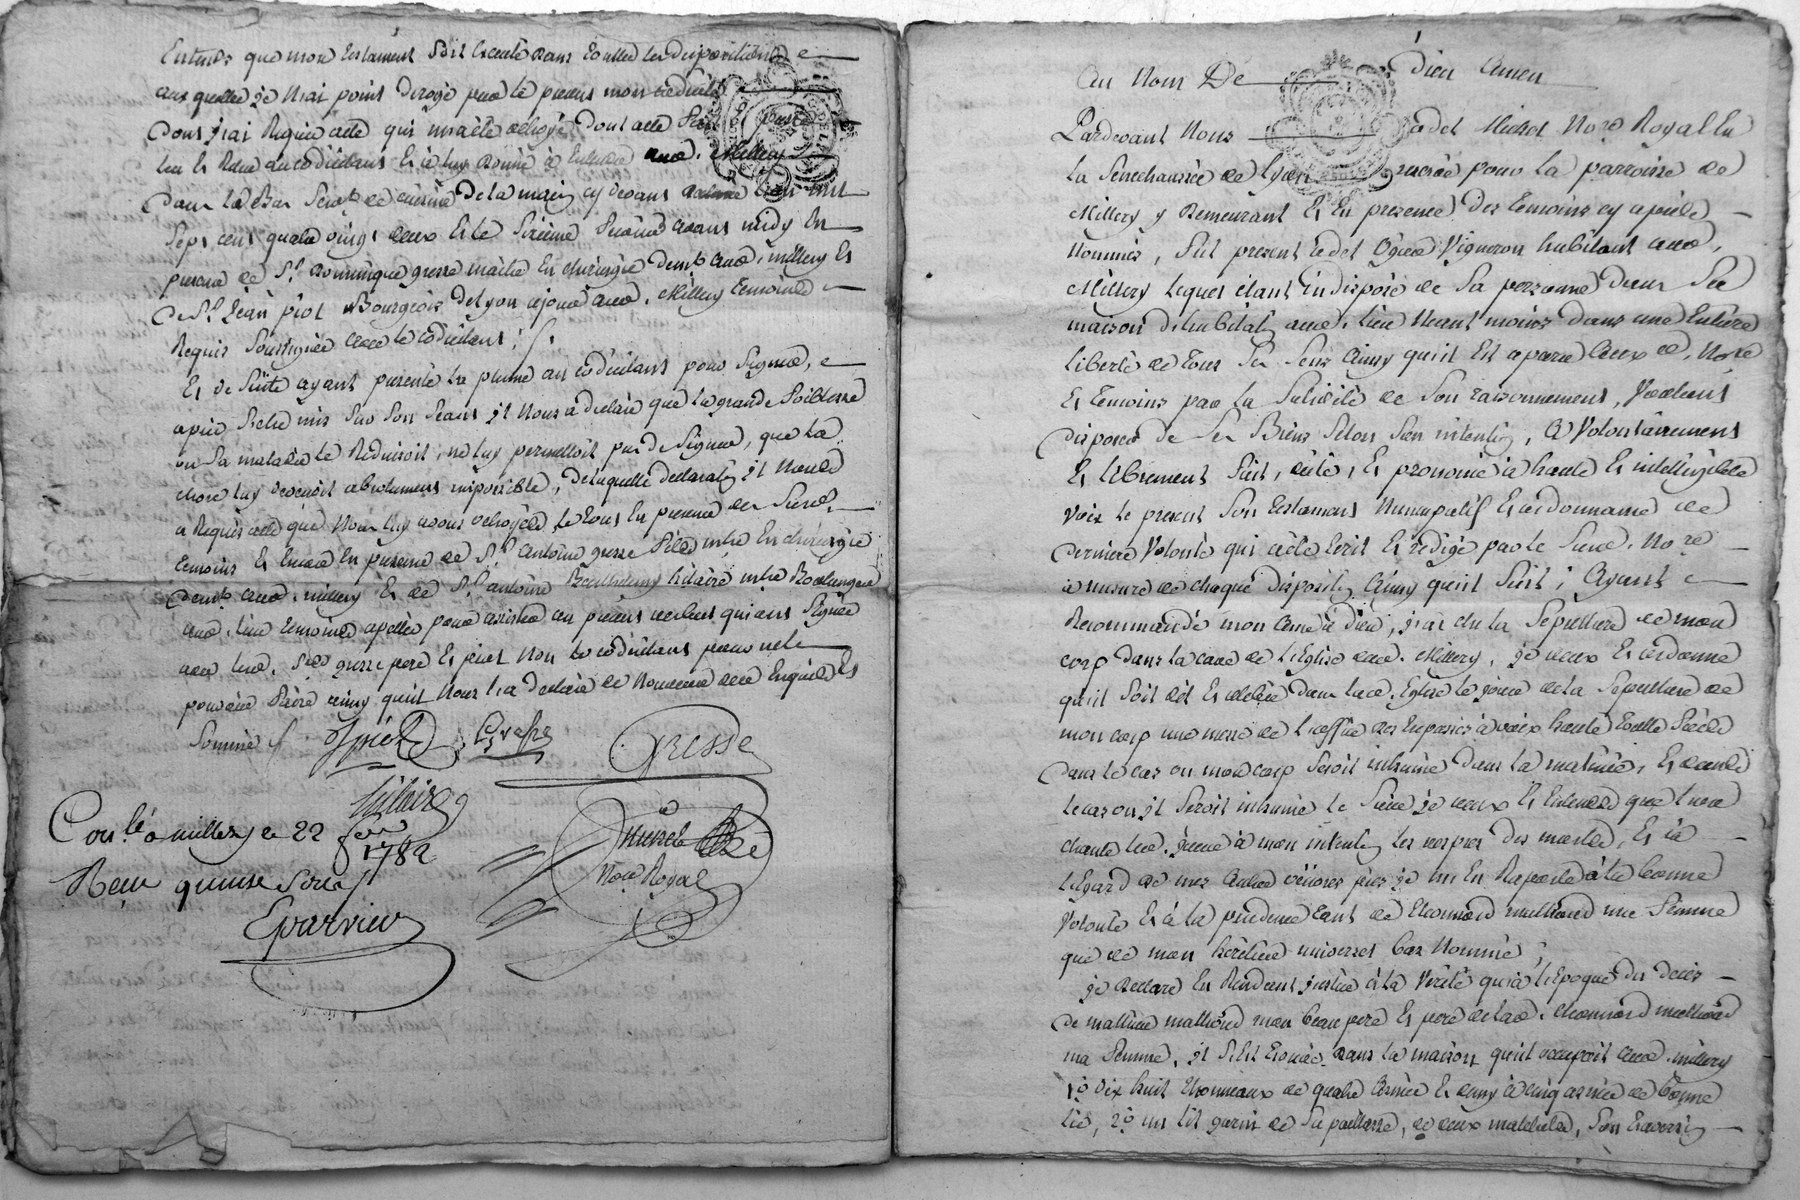 Entends que mon testament soit Exécuté dans toutes les dispositions
aux quelles je n'ai point dérogé par le présent mon
Dont j'ai Requis acte qui m'a été octroyé, dont acte fait
leu Et Relu au codicillant Et à luy donné à Entendre aud. Millery
de la main cy devant L'an mil
Sept cent quatre vingt deux Et le seizieme avant midy En
presence de Sr. Dominique gresse maitre En chirurgie demt aud. millery Et
de Sr. Jean piot Bourgeois de Lyon aud. Millery temoins
Requis soussignés avec le codicillant ;
Et de suite ayant presenté la plume au codicillant pour signer,
après s'etre mis sur son seant, il nous a declaré que la grande foiblesse
ou sa maladie le Reduisoit, ne luy permettoit pas de signer, que la
chose luy devenoit absolument impossible, de laquelle declaration il nous
a Requis acte que nous luy avons octroyé le tout En presence des susd.
temoins Et Encore En presence de Sr. antoine gresse fils mtre En chirurgie
demt aud. millery Et de Sr. antoine Barthelemy hilaire mtre Boulanger
aud. lieu temoins apellés pour assister au present qui ont signé
avec lesd. Srs gresse pere Et piot non le codicillant pour ne le
pouvoir faire ainsy qu'il nous l'a declaré de nouveau de ce Enquis Et
Sommé
J piot
Gresse
Gresse
hilaire
Conlé a millery le 22 fevr
1782
Recu quinse sous
Eparvier
Michel
Nore Royal
Au Nom De Dieu Amen
Pardevant Nous Michel Nore Royal En
la Senechaussée de Lyon pour la parroisse de
Millery y Demeurant Et En presence Des temoins cy apres
Nommés, fut present Vigneron habitant aud.
Millery lequel étant indisposé de sa personne dans sa
maison d'habitation aud. lieu neant moins dans une Entiere
liberté de tous ses sens ainsy qu'il Est aparu auxd. Nore
Et temoins par la solidité de son raisonnement, Voulant
disposer de ses Biens selon son intention, a volontairement
Et librement fait, dicté, Et prononcé à haute Et intelligible
voix le present son testament nuncupatif Et ordonnance de
derniere volonté qui a été Ecrit Et redigé par le susd. Nore
à mesure de chaque disposition ainsy qu'il suit ; Ayant
Recommandé mon ame à Dieu, j'ai élu la sepulture de mon
corp dans la cave de l'Eglise dud. Millery, je veux Et ordonne
qu'il soit dit Et celebré dans lad. Eglise le jour de la sepulture de
mon corp une messe de l'office des trepassés à voix haute
dans le cas ou mon corp seroit inhumé dans la matinée, Et dans
le cas ou il seroit inhumé le soir je veux Et Entends que l'on
chante led. jour à mon intention les vespres des morts, Et à
l'Egard de mes autres œuvres pies je m'En Raporte à la bonne
volonté Et à la prudence tant de ma femme
que de mon heritier universel bas nommé ;
je declare En Rendant justice à la verité qu'à l'Epoque du decés
de mathieu mon beau pere Et pere de lad.
ma femme, il s'est trouvé dans la maison qu'il occupoit aud. millery
1o dix huit tonneaux de quatre année Et demy à cinq asnées de bonne
lie, 2o un lit garni de sa paillasse, de deux matelats, son traversin